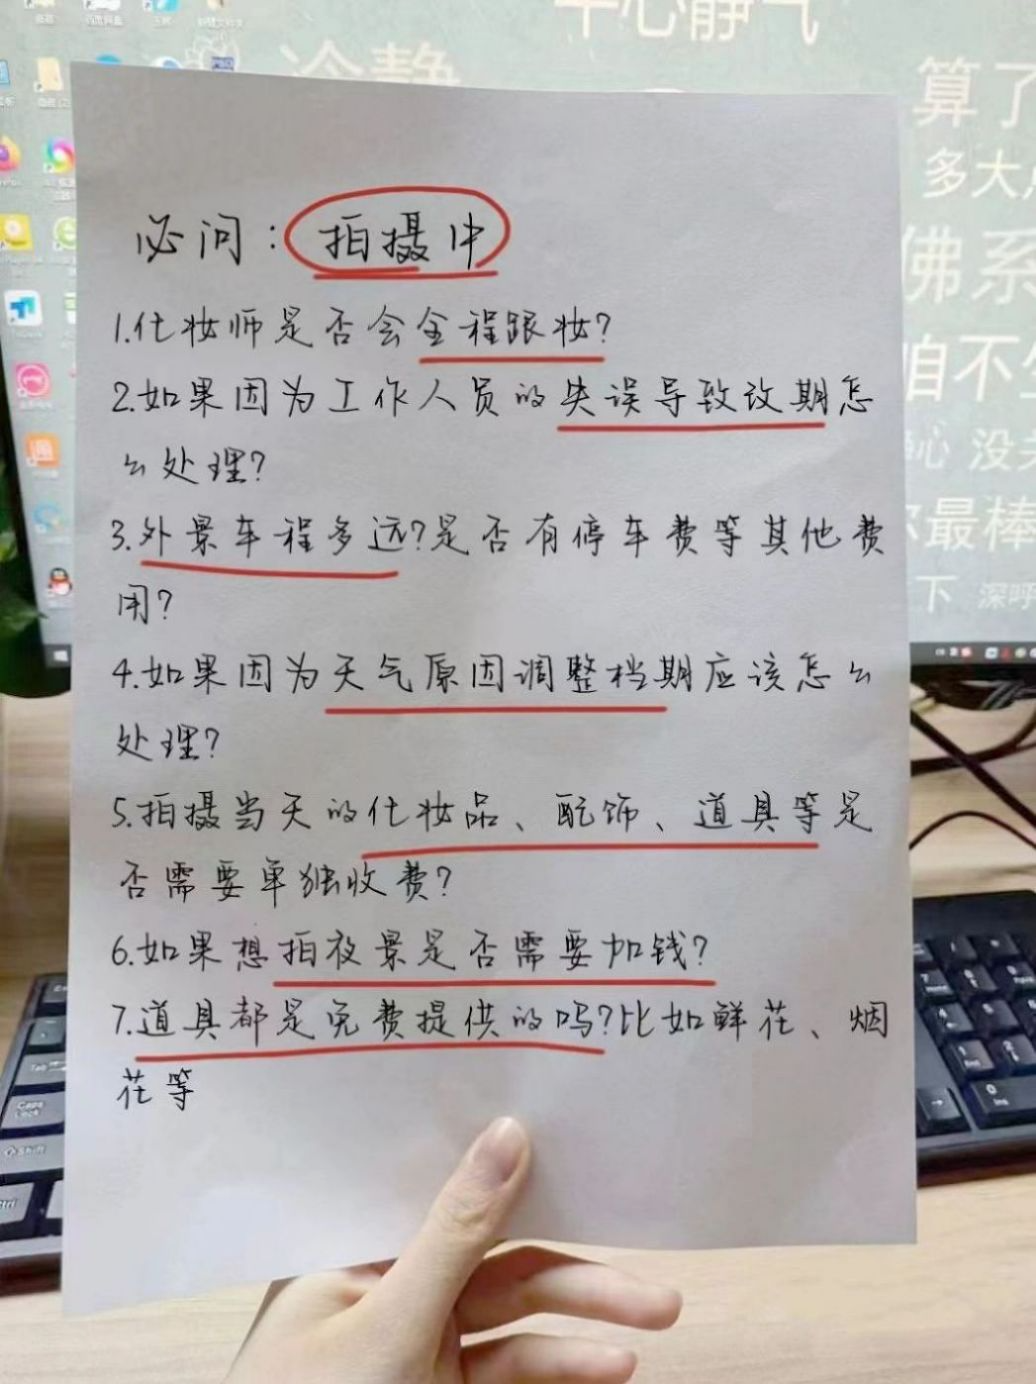 平心静气
冷静
算了
多大
佛系
咱不
心 没
你最棒
下 深呼
必问：拍摄中
1.化妆师是否会全程跟妆？
2.如果因为工作人员的失误导致改期怎
么处理？
3.外景车程多远？是否有停车费等其他费
用？
4.如果因为天气原因调整档期应该怎么
处理？
5.拍摄当天的化妆品、配饰、道具等是
否需要单独收费？
6.如果想拍夜景是否需要加钱？
7.道具都是免费提供的吗？比如鲜花、烟
花等